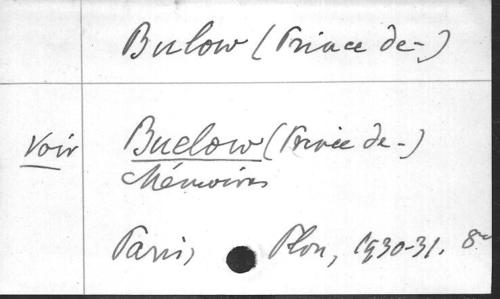 Bulow (Prince de-)
Voir Buelow (Prince de-)
Mémoires
Paris, Plon, 1930-31. 8º